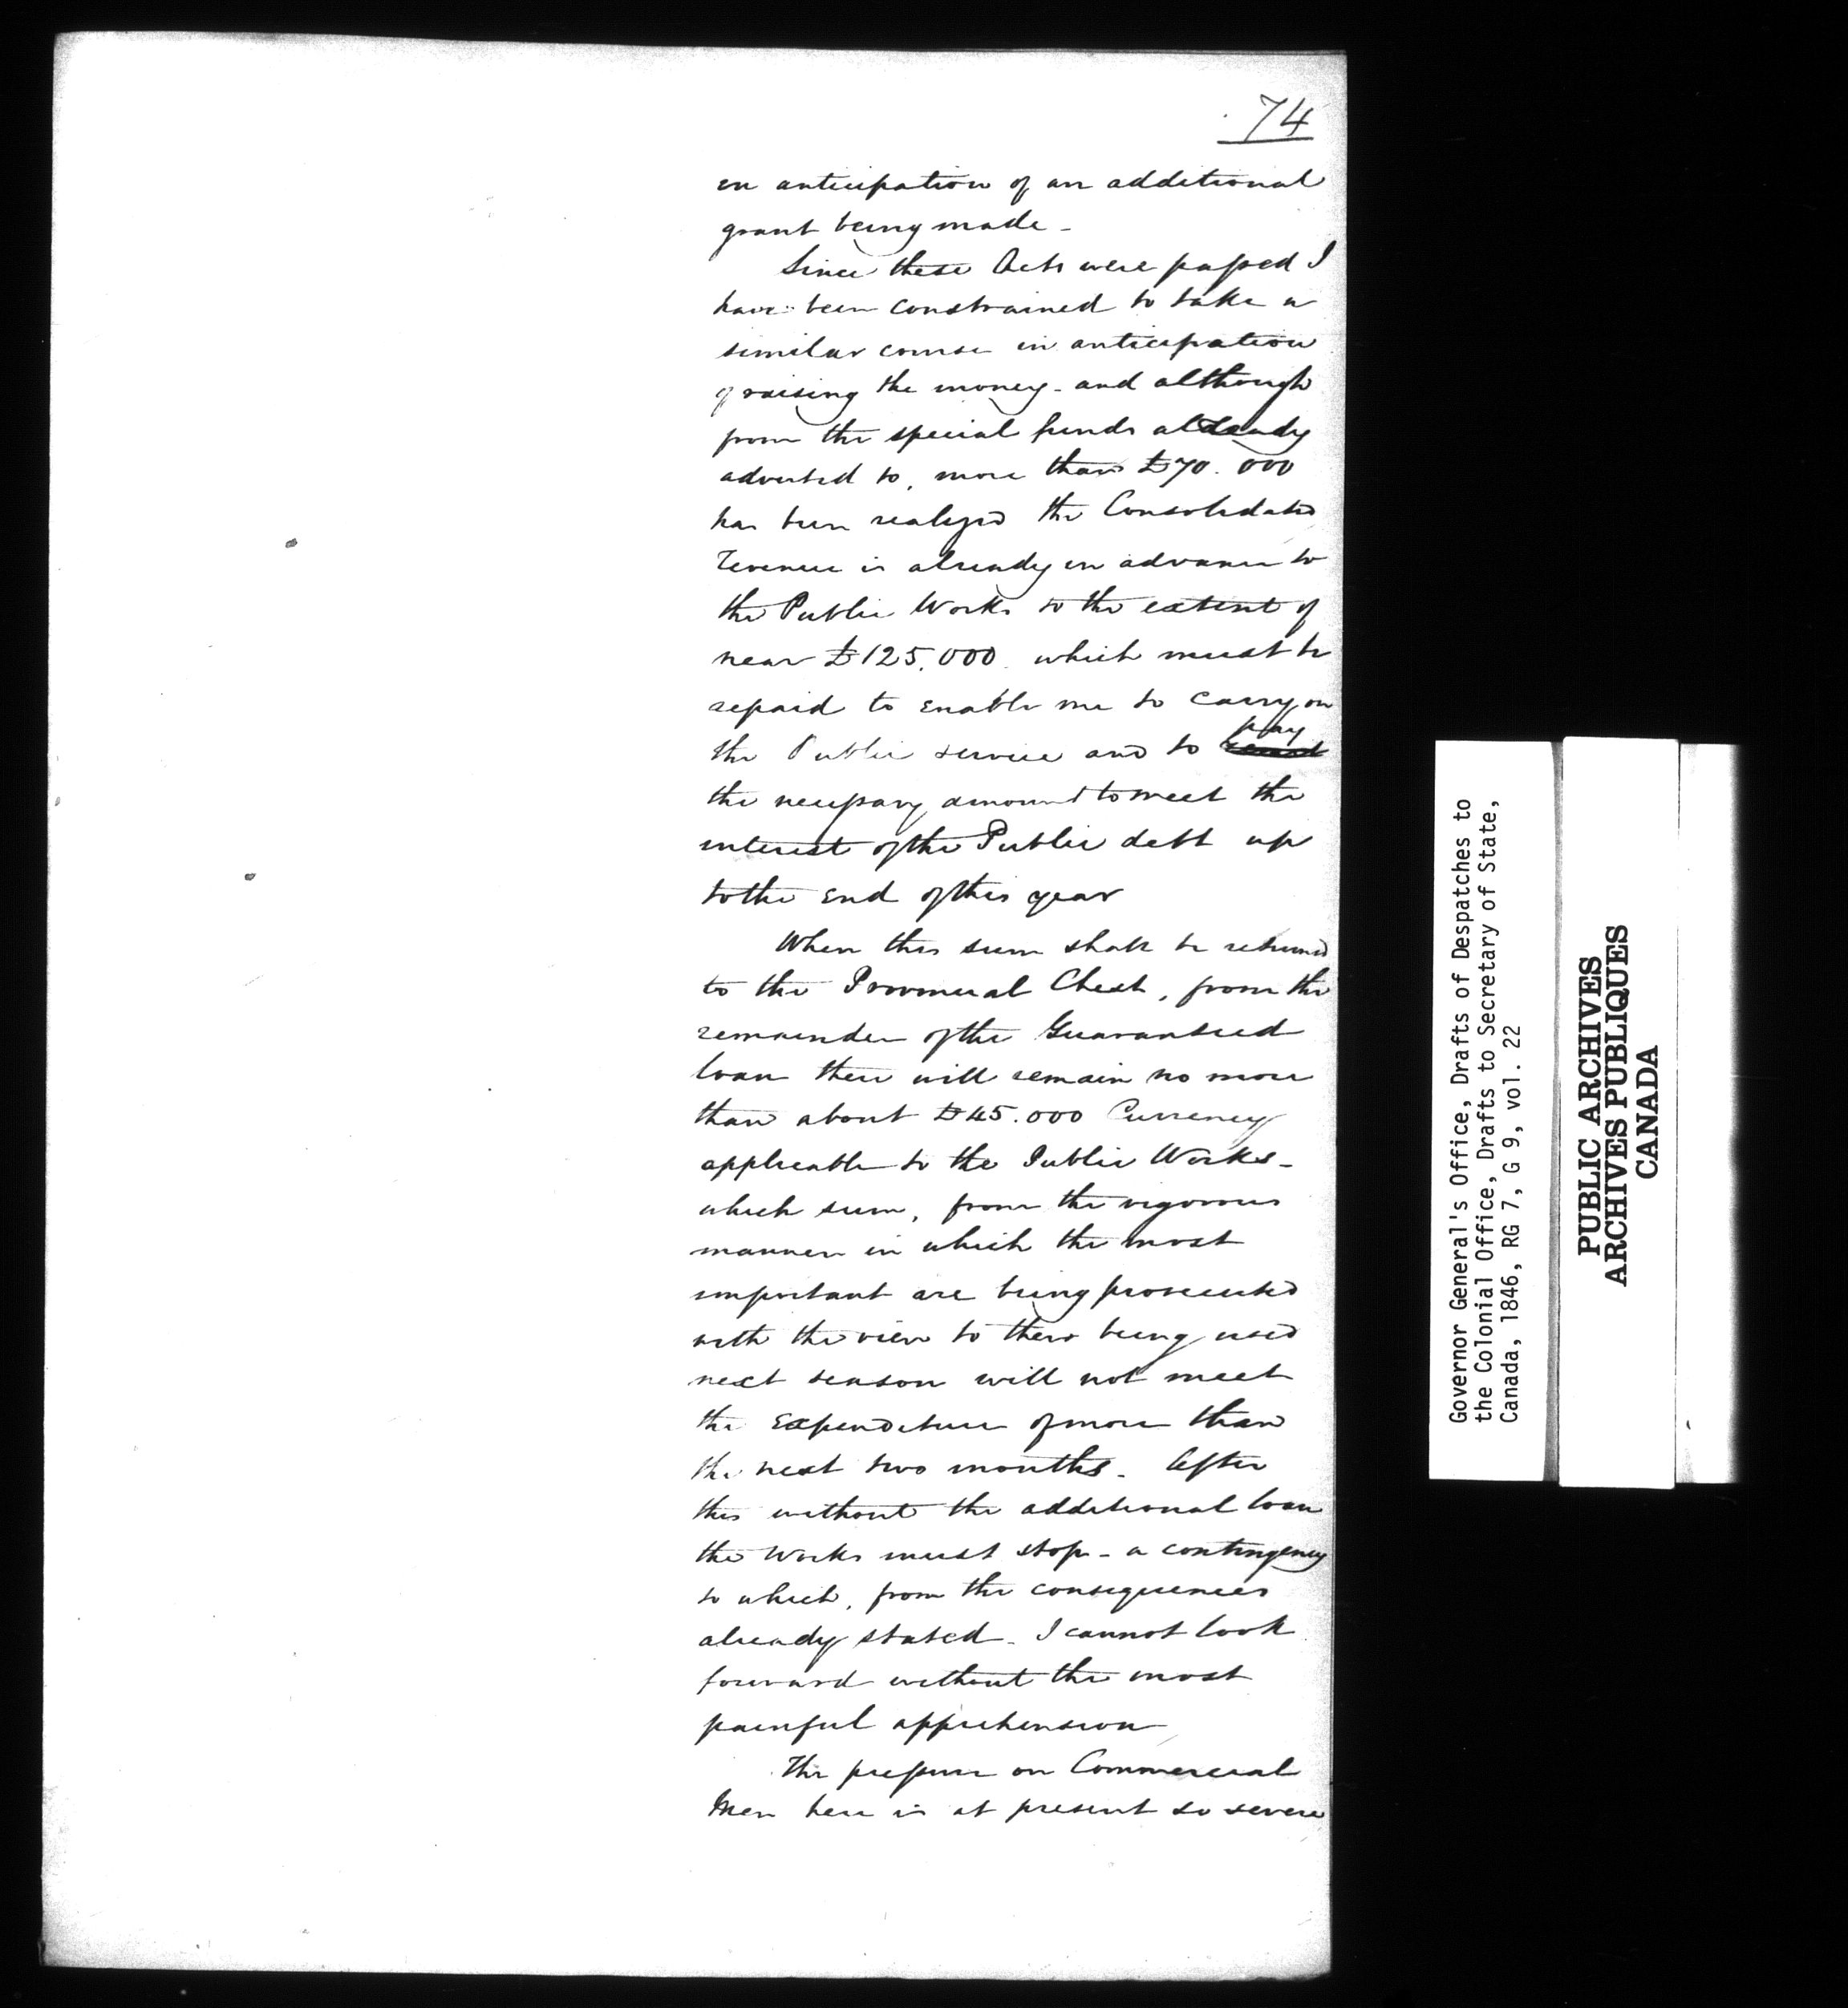 74
in anticipation of an additional
grant being made -
Since these Acts were passed I
have been constrained to take a
similar course in anticipation
of raising the money - and although
from the special funds already
adverted to, more than £70.000
has been realized the Consolidated
Revenue is already in advance to
the Public Works to the extent of
near £125,000 which must be
repaid to enable me to carry on
pay
the Public service and to
the necessary amount to meet the
interest of the Public debt up
to the end of this year
When this sum shall be returned
to the Provincial Chest, from the
remainder of the Guaranteed
loan there will remain no more
than about £45.000 Currency
applicable to the Public Works -
which sum, from the vigorous
manner in which the most
important are being prosecuted
with the view to their being used
next season will not meet
the Expenditure of more than
the next two months. After
this without the additional loan
the Works must stop - a contingency
to which, from the consequences
already stated - I cannot look
forward without the most
painful apprehension
The pressure on Commercial
Men here is at present so severe
Governor General's Office, Drafts of Despatches to
the Colonial Office, Drafts to Secretary of State,
Canada, 1846, RG 7, G 9, vol. 22
PUBLIC ARCHIVES
ARCHIVES PUBLIQUES
CANADA